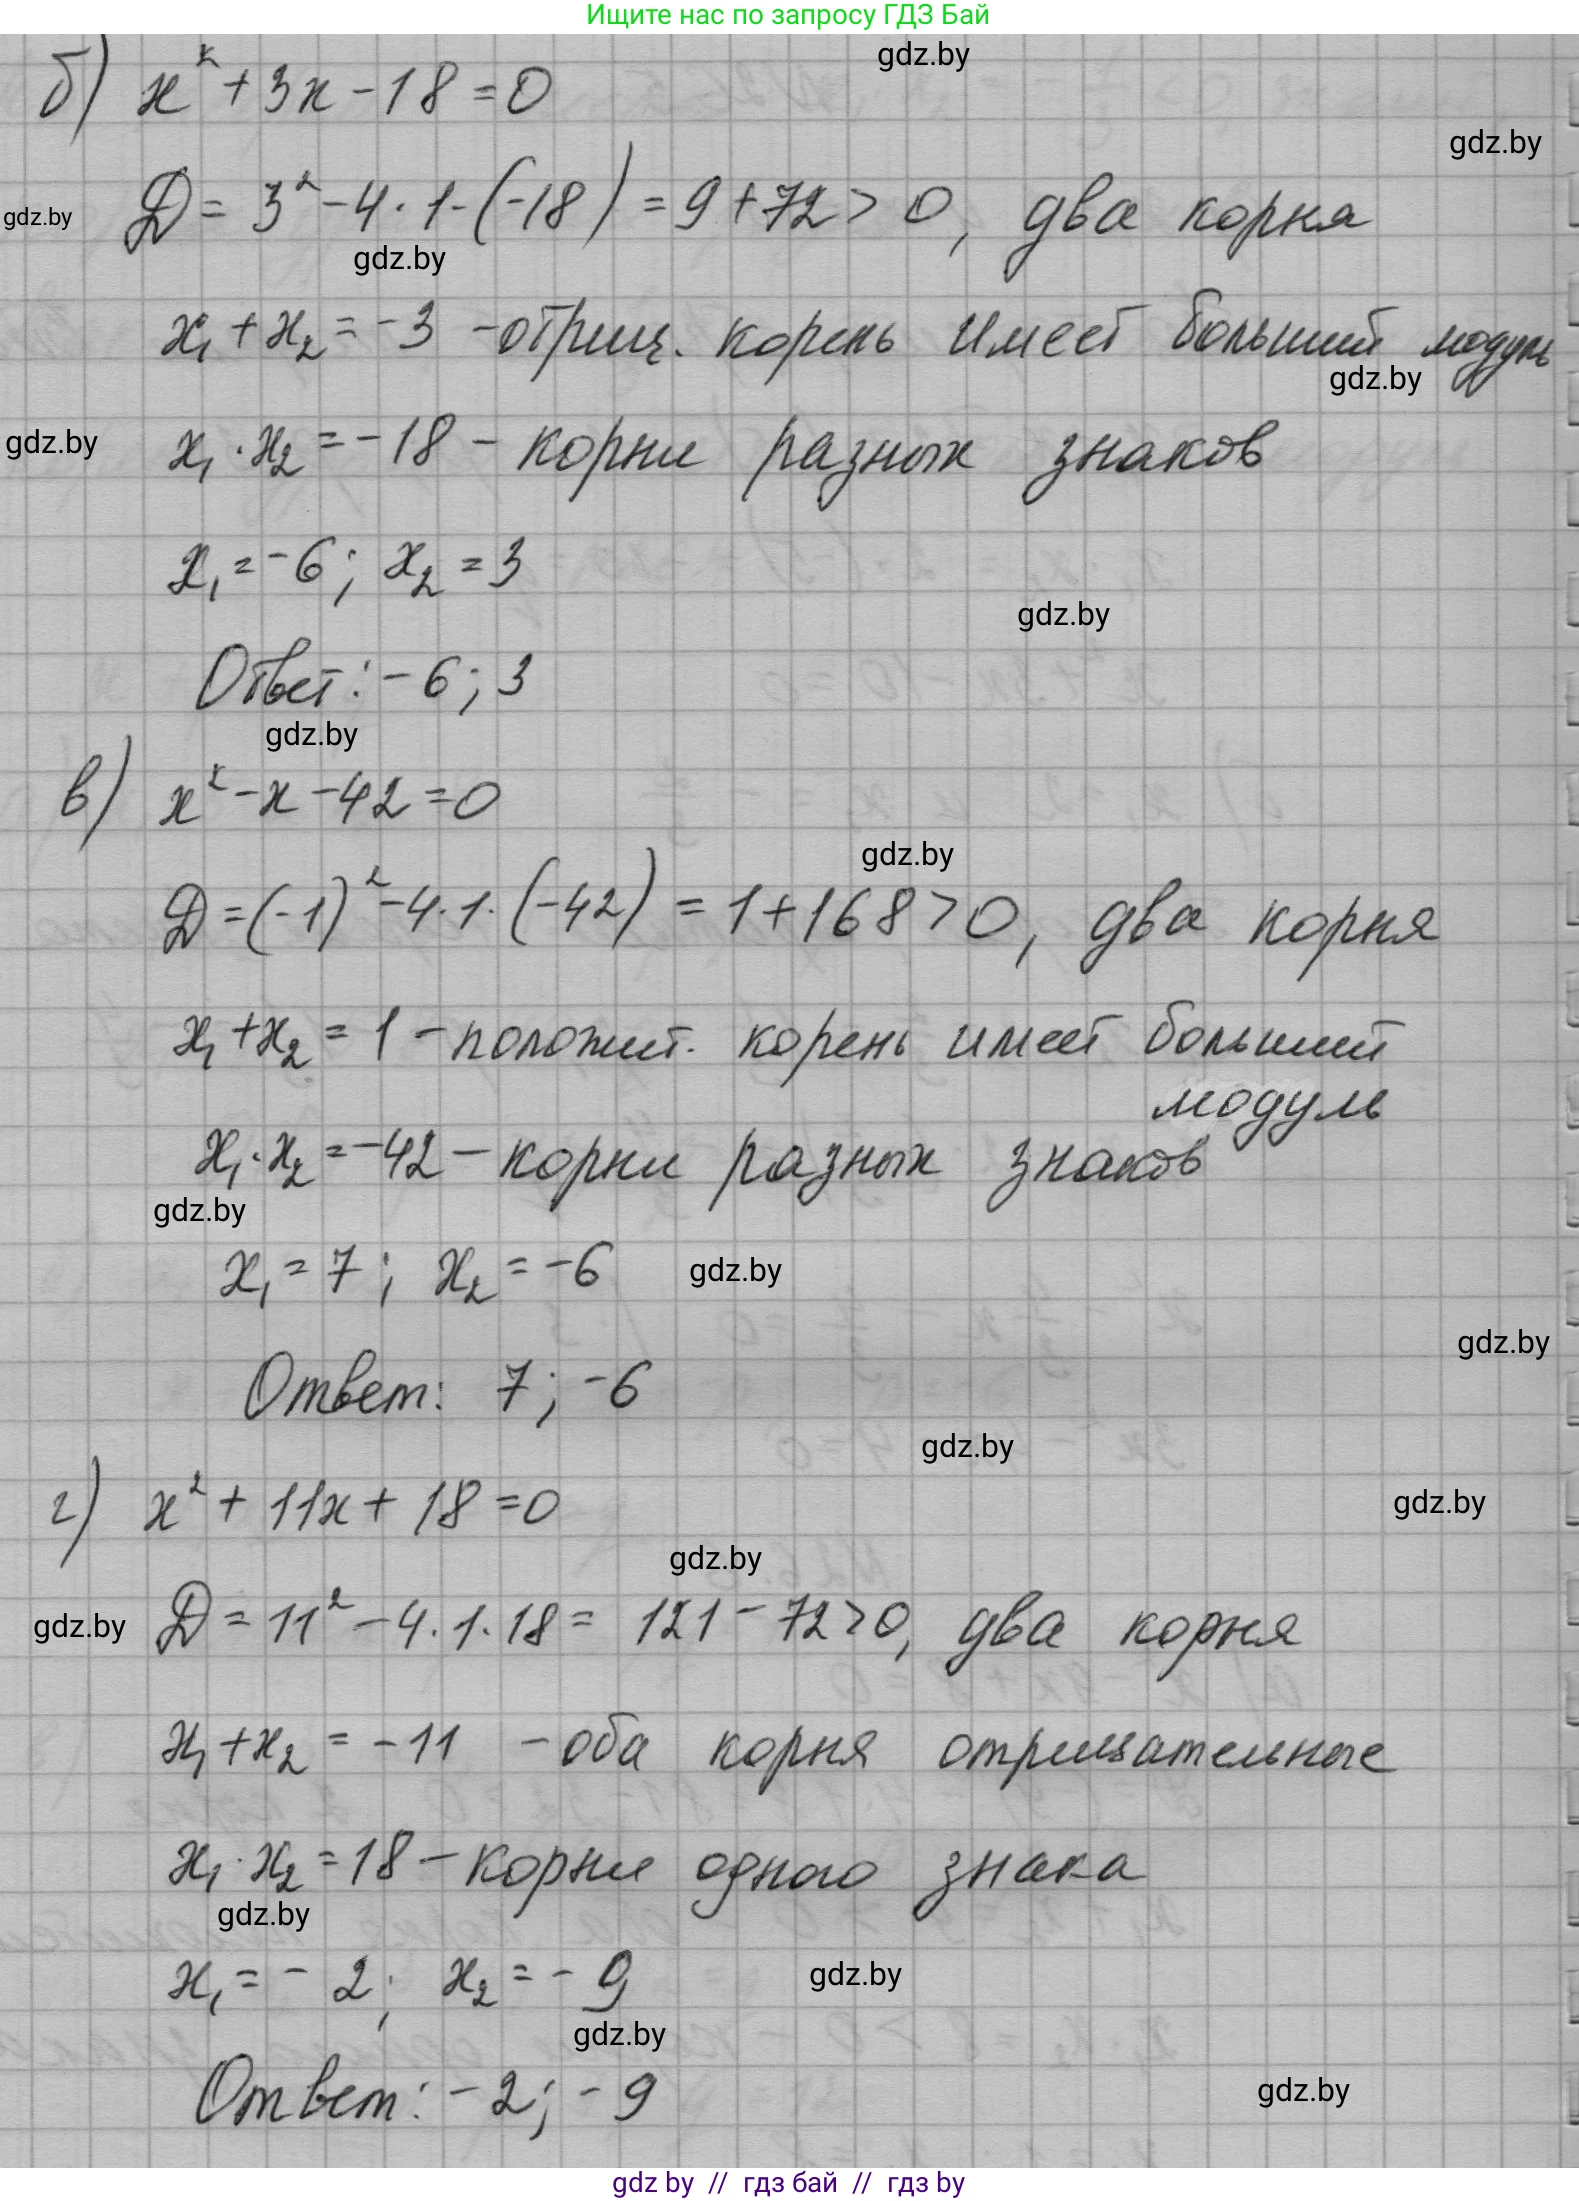 Ищите нас по запросу ГДЗ Бай
gdz.by
б) x² + 3x - 18 = 0
gdz.by
gdz.by
D = 3² - 4 · 1 · (-18) = 9 + 72 > 0, два корня
gdz.by
x₁ + x₂ = -3 - отриц. корень имеет больший модуль
gdz.by
gdz.by
x₁ · x₂ = -18 - корни разных знаков
x₁ = -6; x₂ = 3
gdz.by
Ответ: -6; 3
gdz.by
в) x² - x - 42 = 0
gdz.by
D = (-1)² - 4 · 1 · (-42) = 1 + 168 > 0, два корня
x₁ + x₂ = 1 - положит. корень имеет больший
модуль
x₁ · x₂ = -42 - корни разных знаков
gdz.by
x₁ = 7; x₂ = -6
gdz.by
gdz.by
Ответ: 7; -6
gdz.by
г) x² + 11x + 18 = 0
gdz.by
gdz.by
D = 11² - 4 · 1 · 18 = 121 - 72 > 0, два корня
gdz.by
x₁ + x₂ = -11 - оба корня отрицательные
x₁ · x₂ = 18 - корни одного знака
gdz.by
x₁ = -2; x₂ = -9
gdz.by
gdz.by
Ответ: -2; -9
gdz.by
gdz by // гдз бай // гдз by